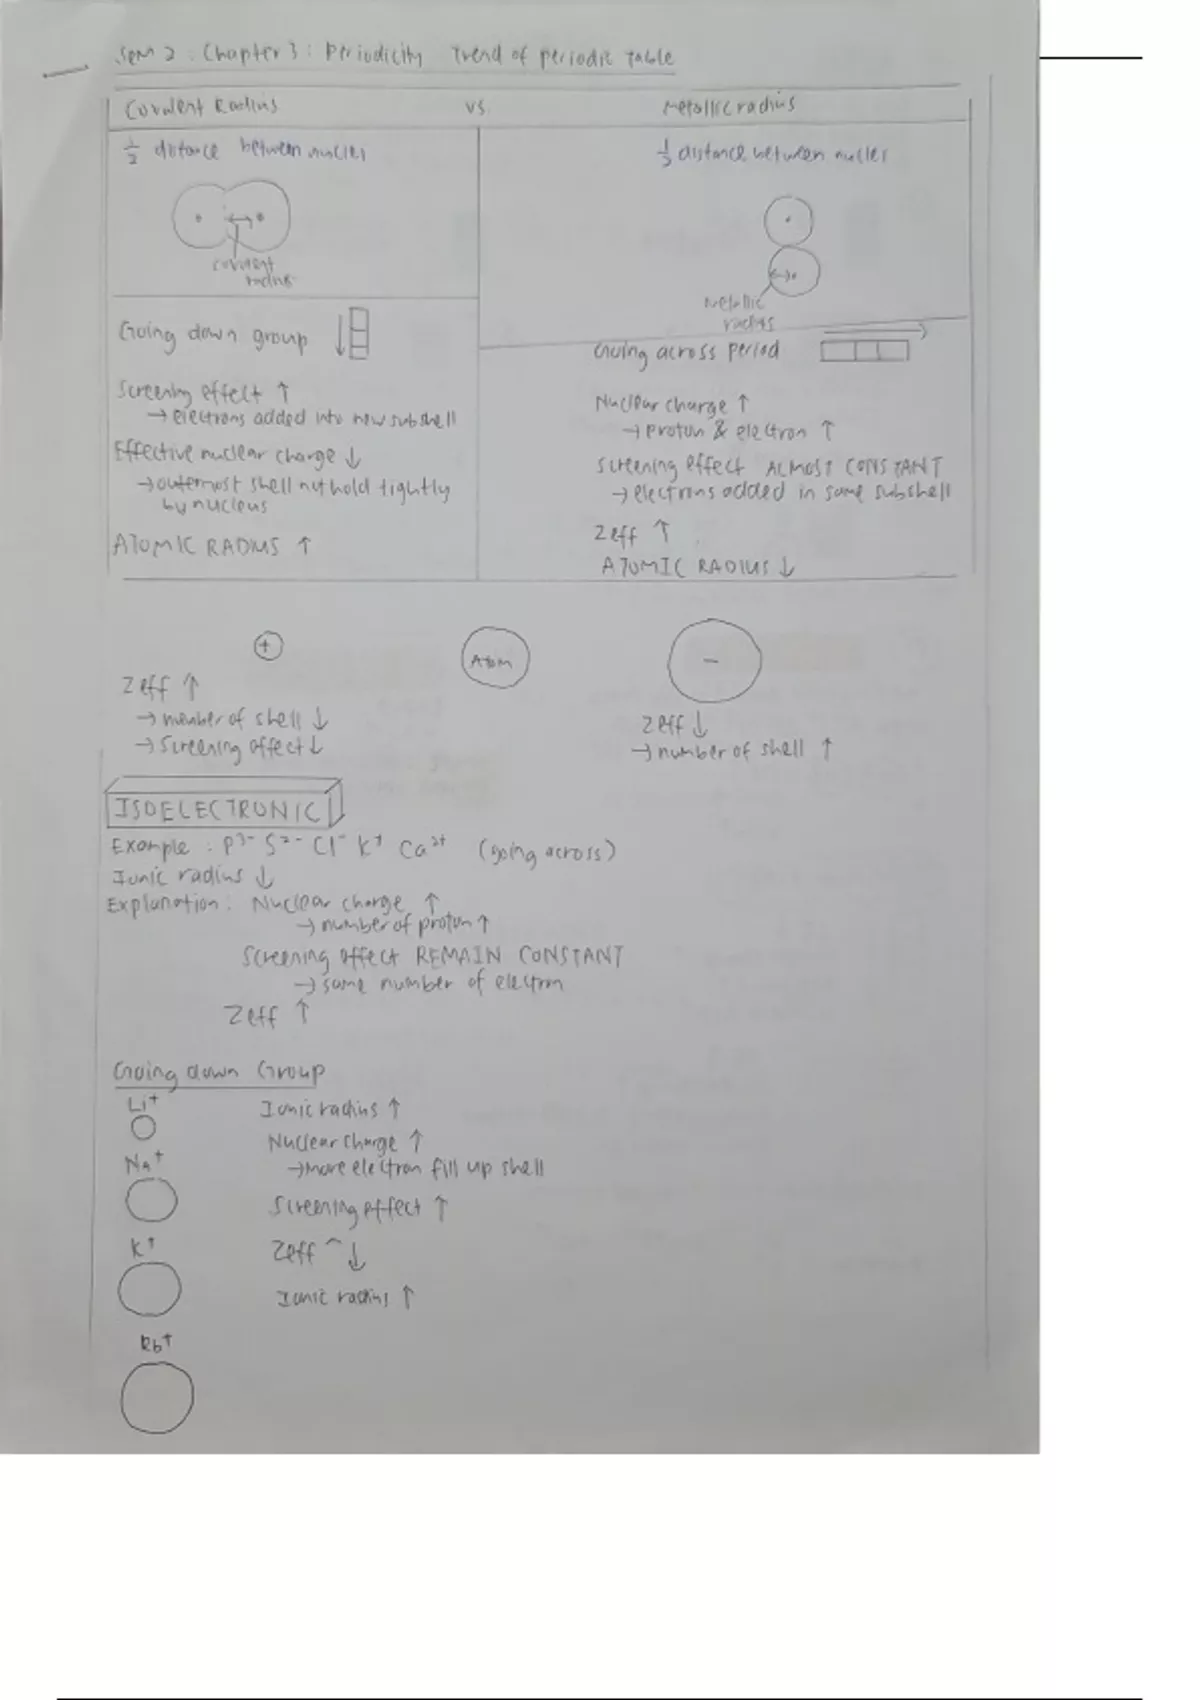 Sem 2 : Chapter 3 : Periodicity Trend of periodic Table
Covalent Radius vs Metallic radius
1/2 distance between nuclei
covalent
radius
1/2 distance between nuclei
Metallic
radius
Going down group
Screening effect ↑
→ electrons added into new subshell
Effective nuclear charge ↓
→ outermost shell not hold tightly
by nucleus
ATOMIC RADIUS ↑
Going across period
Nuclear charge ↑
→ proton & electron ↑
Screening effect ALMOST CONSTANT
→ electrons added in same subshell
Zeff ↑
ATOMIC RADIUS ↓
+
Atom
-
Zeff ↑
→ number of shell ↓
→ Screening effect ↓
Zeff ↓
→ number of shell ↑
ISOELECTRONIC
Example : P³⁻ S²⁻ Cl⁻ K⁺ Ca²⁺ (going across)
Ionic radius ↓
Explanation : Nuclear charge ↑
→ number of proton ↑
Screening effect REMAIN CONSTANT
→ same number of electron
Zeff ↑
Going down Group
Li⁺
Na⁺
K⁺
Rb⁺
Ionic radius ↑
Nuclear charge ↑
→ more electron fill up shell
Screening effect ↑
Zeff ↓
Ionic radius ↑